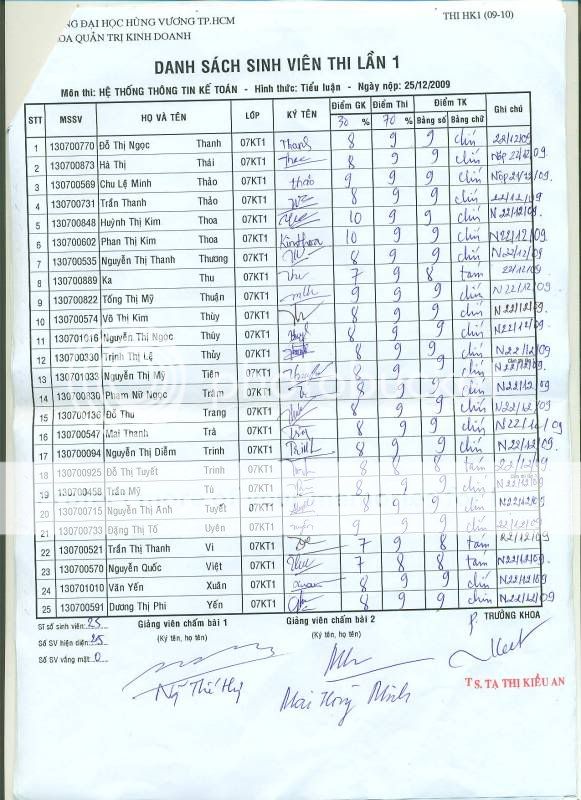 NG ĐẠI HỌC HÙNG VƯƠNG TP.HCM THI HK1 (09-10)
OA QUẢN TRỊ KINH DOANH
DANH SÁCH SINH VIÊN THI LẦN 1
Môn thi: HỆ THỐNG THÔNG TIN KẾ TOÁN - Hình thức: Tiểu luận - Ngày nộp: 25/12/2009
STT MSSV HỌ VÀ TÊN LỚP KÝ TÊN Điểm GK Điểm Thi Điểm TK Ghi chú
30 % 70 % Bằng số Bằng chữ
1 130700770 Đỗ Thị Ngọc Thanh 07KT1 Thanh 8 9 9 chín 22/12/09
2 130700873 Hà Thị Thái 07KT1 8 9 9 chín Nộp 22/12/09
3 130700569 Chu Lệ Minh Thảo 07KT1 thảo 9 9 9 chín Nộp 22/12/09
4 130700731 Trần Thanh Thảo 07KT1 8 9 9 chín 22/12/09
5 130700848 Huỳnh Thị Kim Thoa 07KT1 10 9 9 chín N22/12/09
6 130700602 Phan Thị Kim Thoa 07KT1 Kimthoa 10 9 9 chín N22/12/09
7 130700535 Nguyễn Thị Thanh Thương 07KT1 8 9 9 chín N22/12/09
8 130700889 Ka Thu 07KT1 Thu 7 9 8 tám 22/12/09
9 130700822 Tống Thị Mỹ Thuận 07KT1 9 9 9 chín N22/12/09
10 130700574 Võ Thị Kim Thùy 07KT1 8 9 9 chín N22/12/09
11 130701016 Nguyễn Thị Ngọc Thúy 07KT1 8 9 9 chín N22/12/09
12 130700330 Trịnh Thị Lệ Thủy 07KT1 8 9 9 chín N22/12/09
13 130701033 Nguyễn Thị Mỹ Tiên 07KT1 8 9 9 chín N22/12/09
14 130700830 Phạm Nữ Ngọc Trâm 07KT1 8 9 9 chín N22/12/09
15 130700136 Đỗ Thu Trang 07KT1 8 9 9 chín N22/12/09
16 130700547 Mai Thanh Trà 07KT1 8 9 9 chín N22/12/09
17 130700094 Nguyễn Thị Diễm Trinh 07KT1 Trinh 8 9 9 chín N22/12/09
18 130700925 Đỗ Thị Tuyết Trinh 07KT1 8 8 8 tám 22/12/09
19 130700458 Trần Mỹ Tú 07KT1 8 9 9 chín N22/12/09
20 130700715 Nguyễn Thị Anh Tuyết 07KT1 8 9 9 chín N22/12/09
21 130700733 Đặng Thị Tố Uyên 07KT1 uyên 9 9 9 chín 22/12/09
22 130700521 Trần Thị Thanh Vi 07KT1 7 9 8 tám 22/12/09
23 130700570 Nguyễn Quốc Việt 07KT1 7 8 8 tám N22/12/09
24 130701010 Văn Yến Xuân 07KT1 Xuân 8 9 9 chín N22/12/09
25 130700591 Dương Thị Phi Yến 07KT1 8 9 9 chín N22/12/09
Sĩ số sinh viên: 25 Giảng viên chấm bài 1 Giảng viên chấm bài 2 TRƯỞNG KHOA
Số SV hiện diện: 25 (Ký tên, họ tên) (Ký tên, họ tên)
Số SV vắng mặt: 0
Mai Hoàng Minh
TS. TẠ THỊ KIỀU AN